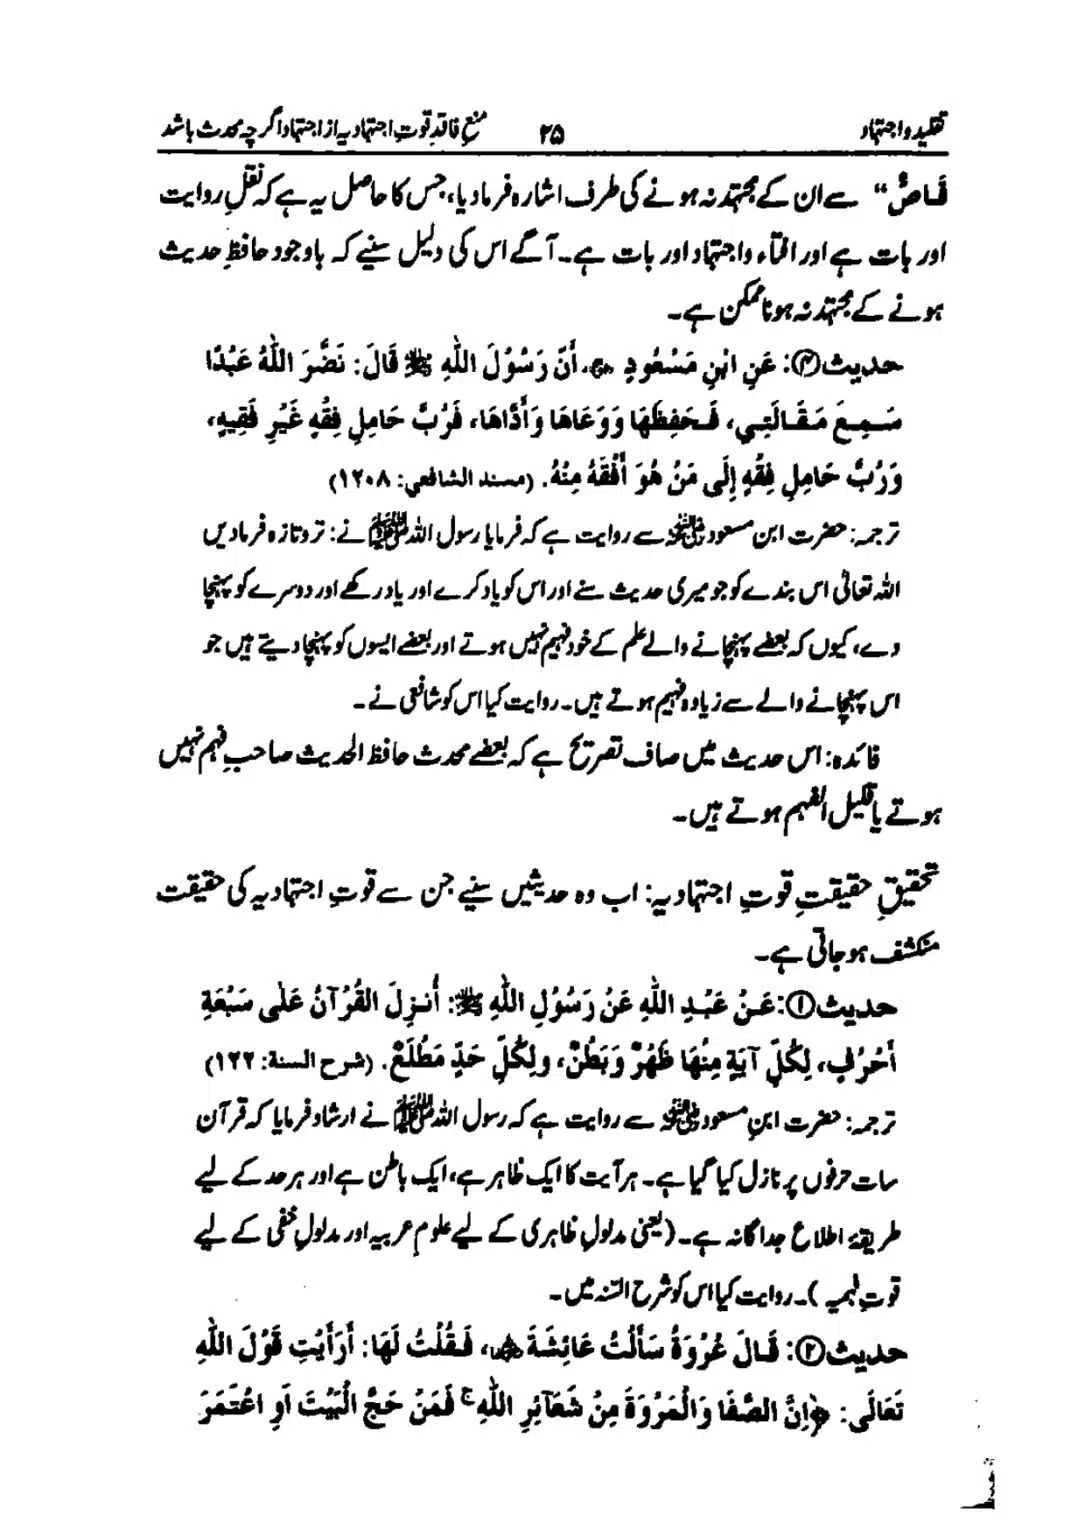 تقلید و اجتہاد ۲۵ منع فاقد قوتِ اجتہادیہ از اجتہاد اگرچہ محدث باشد
قَاصٌّ“ سے ان کے مجتہد نہ ہونے کی طرف اشارہ فرمادیا، جس کا حاصل یہ ہے کہ نقلِ روایت
اور بات ہے اور افتاء و اجتہاد اور بات ہے۔ آگے اس کی دلیل سنیے کہ باوجود حافظِ حدیث
ہونے کے مجتہد نہ ہونا ممکن ہے۔
حدیث④: عَنِ ابْنِ مَسْعُودٍ ؓ، أَنَّ رَسُوْلَ اللّٰهِ ﷺ قَالَ: نَضَّرَ اللّٰهُ عَبْدًا
سَمِعَ مَقَالَتِي، فَحَفِظَهَا وَوَعَاهَا وَأَدَّاهَا، فَرُبَّ حَامِلِ فِقْهٍ غَيْرِ فَقِيهٍ،
وَرُبَّ حَامِلِ فِقْهٍ إِلَى مَنْ هُوَ أَفْقَهُ مِنْهُ. (مسند الشافعي: ١٢٠٨)
ترجمہ: حضرت ابن مسعود رضی اللہ عنہ سے روایت ہے کہ فرمایا رسول اللہ ﷺ نے: تروتازہ فرمادیں
اللہ تعالیٰ اس بندے کو جو میری حدیث سنے اور اس کو یاد کرے اور یاد رکھے اور دوسرے کو پہنچا
دے، کیوں کہ بعضے پہنچانے والے علم کے خود فہیم نہیں ہوتے اور بعضے ایسوں کو پہنچا دیتے ہیں جو
اس پہنچانے والے سے زیادہ فہیم ہوتے ہیں۔ روایت کیا اس کو شافعی نے۔
فائدہ: اس حدیث میں صاف تصریح ہے کہ بعضے محدث حافظ الحدیث صاحبِ فہم نہیں
ہوتے یا قلیل الفہم ہوتے ہیں۔
تحقیقِ حقیقتِ قوتِ اجتہادیہ: اب وہ حدیثیں سنیے جن سے قوتِ اجتہادیہ کی حقیقت
منکشف ہوجاتی ہے۔
حدیث①: عَنْ عَبْدِ اللّٰهِ عَنْ رَسُوْلِ اللّٰهِ ﷺ: أُنْزِلَ الْقُرْآنُ عَلٰى سَبْعَةِ
أَحْرُفٍ، لِكُلِّ آيَةٍ مِنْهَا ظَهْرٌ وَبَطْنٌ، ولِكُلِّ حَدٍّ مَطْلَعٌ. (شرح السنة: ١٢٢)
ترجمہ: حضرت ابنِ مسعود رضی اللہ عنہ سے روایت ہے کہ رسول اللہ ﷺ نے ارشاد فرمایا کہ قرآن
سات حرفوں پر نازل کیا گیا ہے۔ ہر آیت کا ایک ظاہر ہے، ایک باطن ہے اور ہر حد کے لیے
طریقۂ اطلاع جداگانہ ہے۔ (یعنی مدلولِ ظاہری کے لیے علومِ عربیہ اور مدلولِ خفی کے لیے
قوتِ فہمیہ)۔ روایت کیا اس کو شرح السّنہ میں۔
حدیث②: قَالَ عُرْوَةُ سَأَلْتُ عَائِشَةَ ؓ، فَقُلْتُ لَهَا: أَرَأَيْتِ قَوْلَ اللّٰهِ
تَعَالَى: ﴿إِنَّ الصَّفَا وَالْمَرْوَةَ مِنْ شَعَآئِرِ اللّٰهِ ۚ فَمَنْ حَجَّ الْبَيْتَ أَوِ اعْتَمَرَ